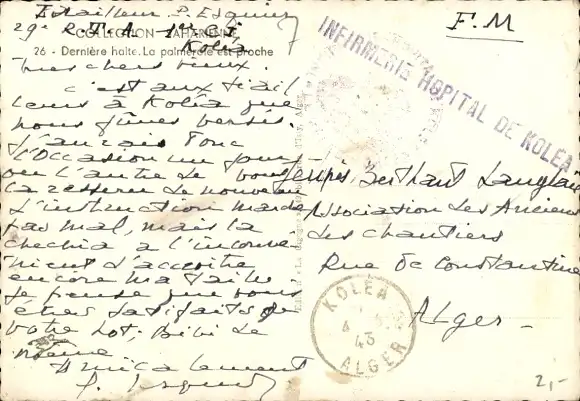 Tirailleur P. Esquer
29e R.T.A.
Kolea
COLLECTION SAHARIENNE
26 - Dernière halte. La palmeraie est proche
mes chers vieux.
c'est aux tirail
leurs à Kolea que
nous fûmes versés.
J'aurais donc
l'occasion un jour
ou l'autre de vous
de nouveau
L'instruction marche
pas mal, mais la
chechia a l'inconvé
nient d'accroître
encore ma taille
Je pense que vous
êtes satisfaits de
votre lot; Bibi de
même
Amicalement
P. Esquer
F.M
INFIRMERIE HOPITAL DE KOLEA
Berthaut Langlais
Association des Anciens
des chantiers
Rue de Constantine
Alger
KOLEA
43
ALGER
2,-